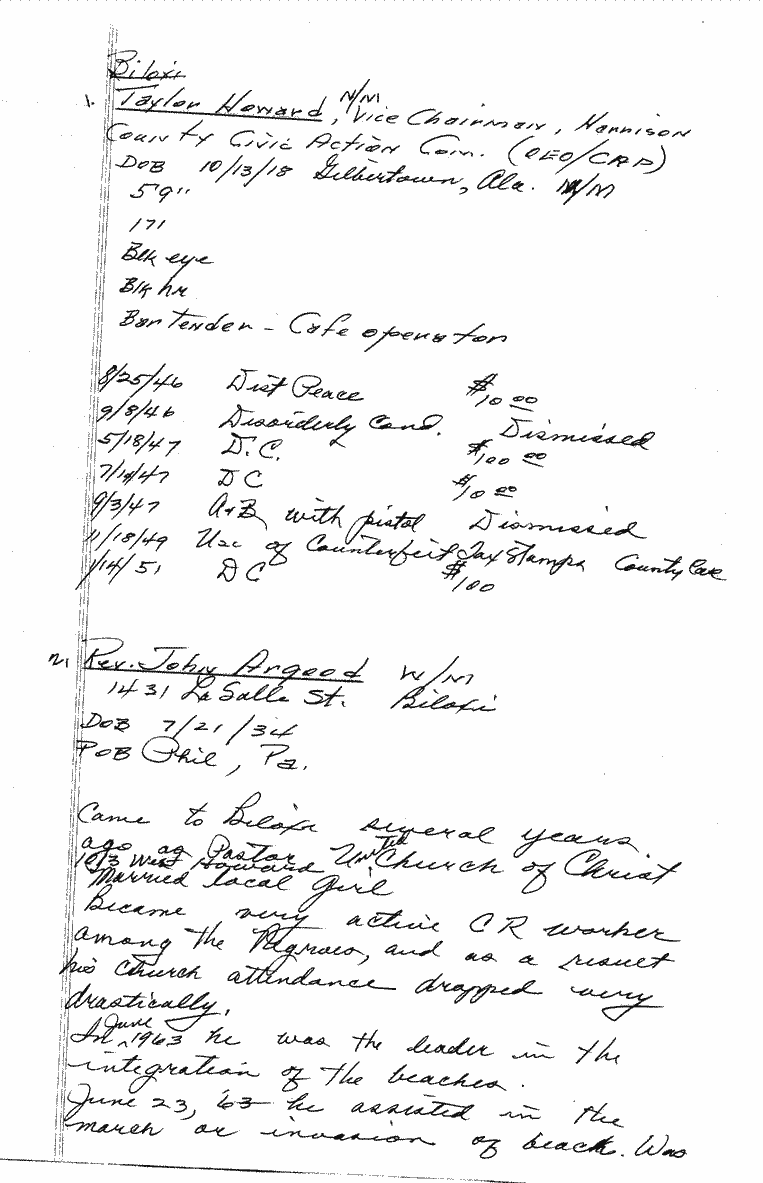 Biloxi
1. Taylor Howard, N/M Vice Chairman, Harrison
County Civic Action Com. (OEO/CAP)
DOB 10/13/18 Gilbertown, Ala. N/M
5'9"
171
Blk eye
Blk hr
Bartender - Cafe operator
8/25/46 Dist Peace $10.00
9/8/46 Disorderly Cond. Dismissed
5/18/47 D.C. $100.00
DC $10.00
9/3/47 A+B with pistol Dismissed
11/18/49 Use of Counterfeit Tax Stamps County
1/14/51 DC $100
2. Rev. John Aregood W/M
1431 LaSalle St. Biloxi
DOB 7/21/34
POB Phil, Pa.
Came to Biloxi several years
ago as Pastor United Church of Christ
1013 West Howard
Married local girl
Became very active CR worker
among the Negroes, and as a result
his church attendance dropped very
drastically.
In June 1963 he was the leader in the
integration of the beaches.
June 23, '63 he assisted in the
march or invasion of beach. Was